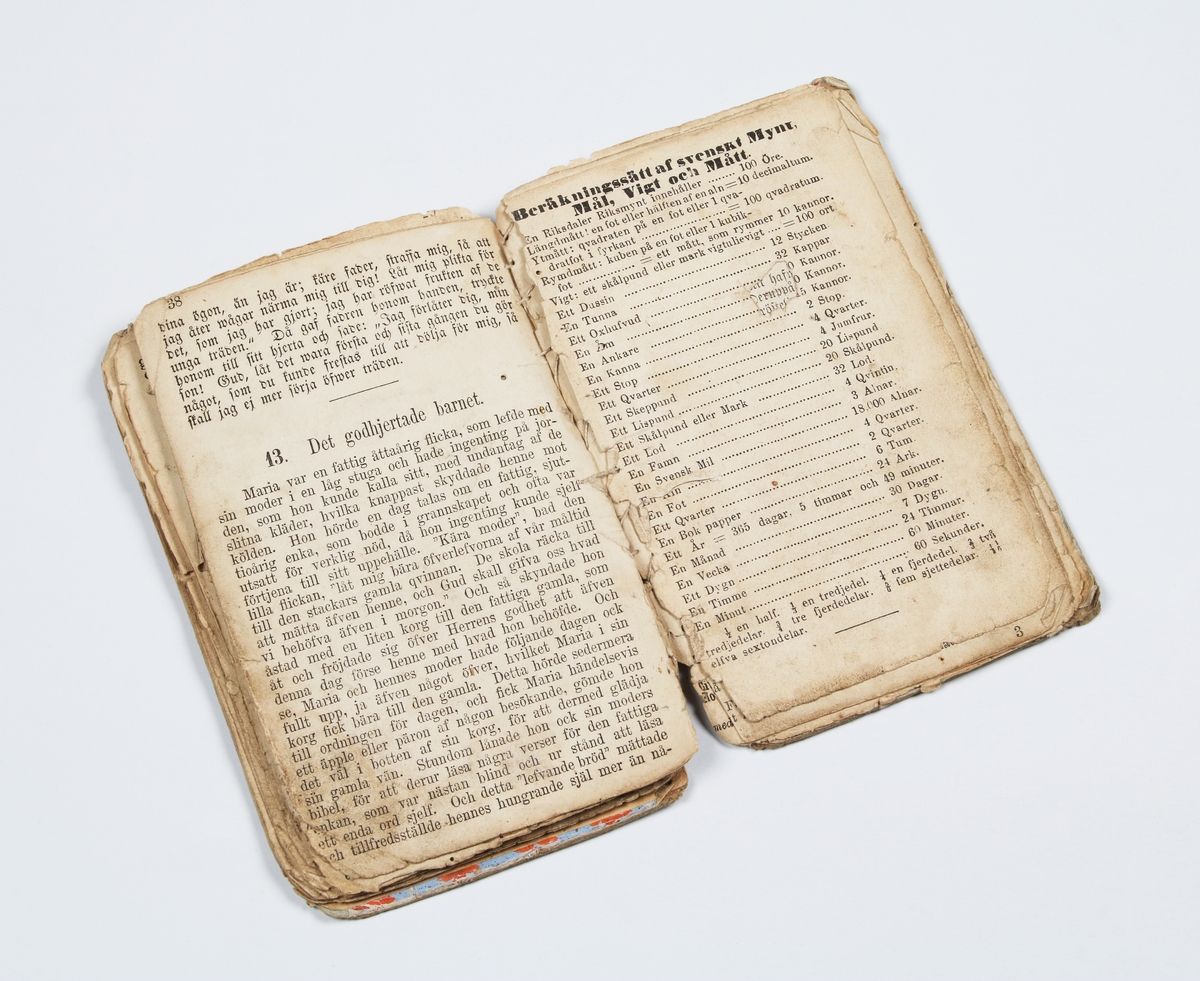 38
dina ögon, än jag är; käre fader, straffa mig, så att
jag åter wågar närma mig till dig! Låt mig plikta för
det, som jag har gjort; jag har röfwat frukten af de
unga träden." Då gaf fadren honom handen, tryckte
honom till sitt hjerta och sade: "Jag förlåter dig, min
son! Gud, låt det wara första och sista gången du går
något, som du kunde frestas till att dölja för mig, så
skall jag ej mer sörja öfwer träden.
13. Det godhjertade barnet.
Maria var en fattig åttaårig flicka, som lefde med
sin moder i en låg stuga och hade ingenting på jor-
den, som hon kunde kalla sitt, med undantag af de
slitna kläder, hvilka knappast skyddade henne mot
kölden. Hon hörde en dag talas om en fattig, sjut-
tioårig enka, som bodde i grannskapet och ofta var
utsatt för verklig nöd, då hon ingenting kunde sjelf
förtjena till sitt uppehälle. "Kära moder", bad den
lilla flickan, "låt mig bära öfverlefvorna af vår måltid
till den stackars gamla qvinnan. De skola räcka till
att mätta äfven henne, och Gud skall gifva oss hvad
vi behöfva äfven i morgon." Och så skyndade hon
åstad med en liten korg till den fattiga gamla, som
åt och fröjdade sig öfver Herrens godhet att äfven
denna dag förse henne med hvad hon behöfde. Och
se, Maria och hennes moder hade följande dagen ock
fullt upp, ja äfven något öfver, hvilket Maria i sin
korg fick bära till den gamla. Detta hörde sedermera
till ordningen för dagen, och fick Maria händelsevis
ett äpple eller päron af någon besökande, gömde hon
det väl i botten af sin korg, för att dermed glädja
sin gamla vän. Stundom lånade hon ock sin moders
bibel, för att derur läsa några verser för den fattiga
enkan, som var nästan blind och ur stånd att läsa
ett enda ord sjelf. Och detta "lefvande bröd" mättade
och tillfredsställde hennes hungrande själ mer än nå-
Beräkningssätt af svenskt Mynt,
Mål, Vigt och Mått.
En Riksdaler Riksmynt innehåller ........ 100 Öre.
Längdmått: en fot eller hälften af en aln = 10 decimaltum.
Ytmått: qvadraten på en fot eller 1 qva-
dratfot i fyrkant ........ = 100 qvadratum.
Rymdmått: kuben på en fot eller 1 kubik-
fot ........ = ett mått, som rymmer 10 kannor.
Vigt: ett skålpund eller mark vigtulievigt ..... = 100 ort.
Ett Dussin ........ 12 Stycken
En Tunna ........ 32 Kappar
Ett Oxhufvud ........ Kannor.
En Åm ........ Kannor.
En Ankare ........ Kannor.
En Kanna ........ 2 Stop.
Ett Stop ........ 4 Qvarter.
Ett Qvarter ........ 4 Jumfrur.
Ett Skeppund ........ 20 Lispund
Ett Lispund ........ 20 Skålpund.
Ett Skålpund eller Mark ........ 32 Lod.
Ett Lod ........ 4 Qvintin.
En Famn ........ 3 Alnar.
En Svensk Mil ........ 18,000 Alnar.
En Aln ........ 4 Qvarter.
En Fot ........ 2 Qvarter.
Ett Qvarter ........ 6 Tum.
En Bok papper ........ 24 Ark.
Ett År = 365 dagar, 5 timmar och 49 minuter.
En Månad ........ 30 Dagar.
En Vecka ........ 7 Dygn.
Ett Dygn ........ 24 Timmar.
En Timme ........ 60 Minuter.
En Minut ........ 60 Sekunder.
½ en half. ⅓ en tredjedel. ¼ en fjerdedel. ⅔ två
tredjedelar. ¾ tre fjerdedelar. ⅚ fem sjettedelar. 11/16
elfva sextondelar.
3